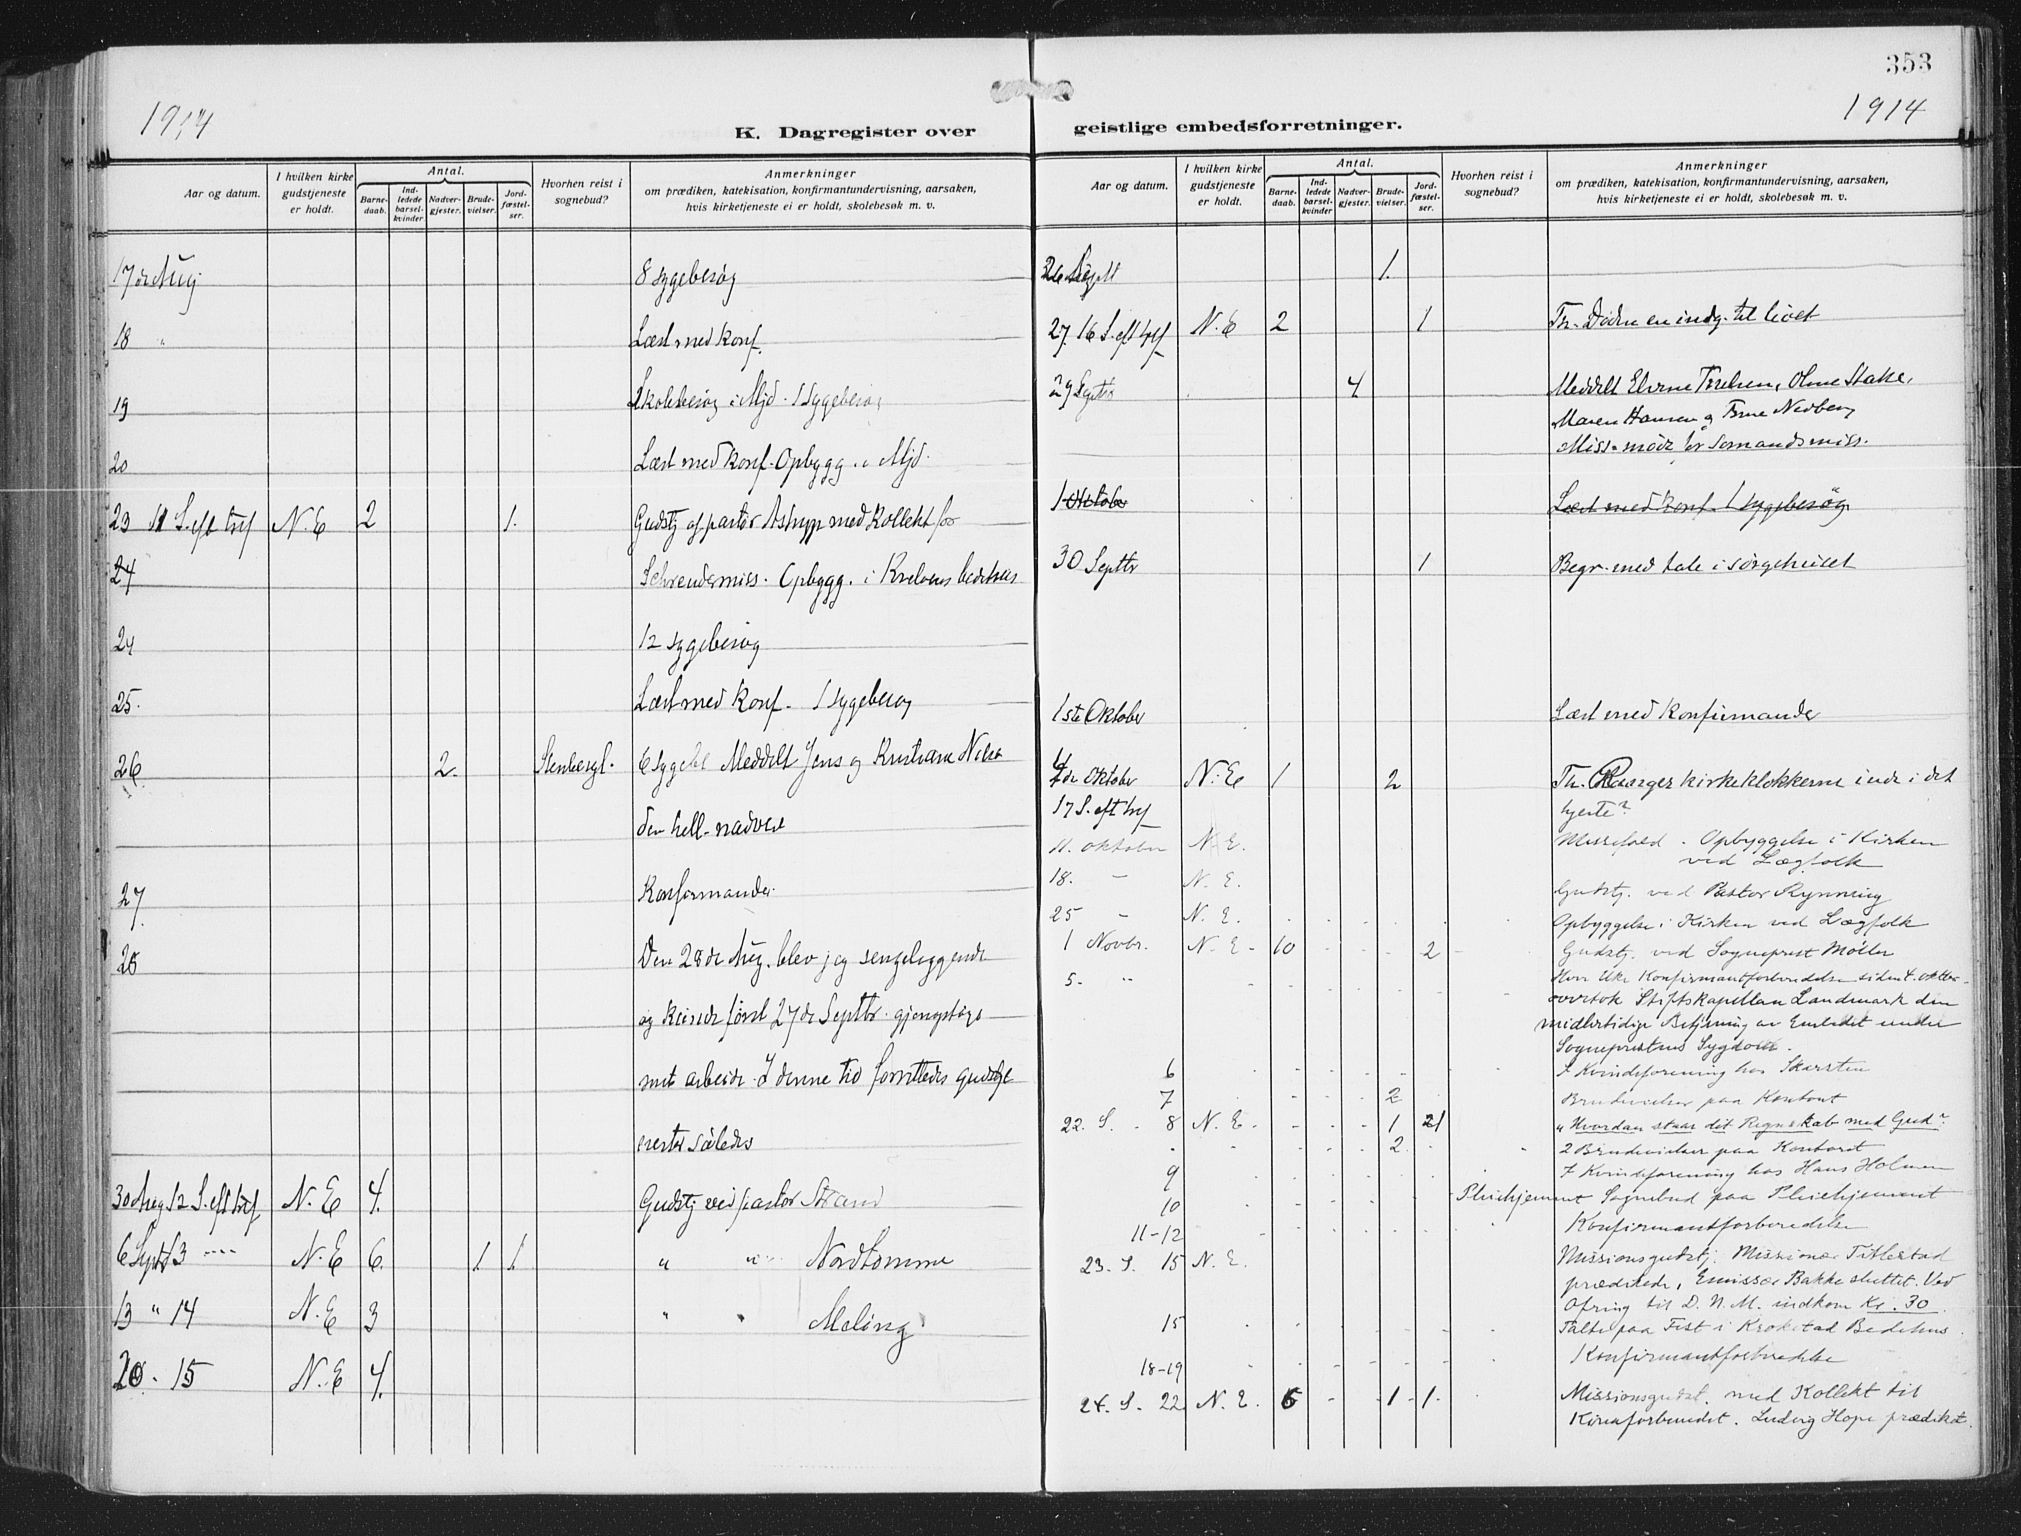 353
1914
K. Dagregister over
Aar og datum.
I hvilken kirke gudstjeneste er holdt.
Antal.
Barne-daab.
Ind-ledede barsel-kvinder
Nadver-gjester.
Brude-vielser.
Jord-fæstel-ser.
Hvorhen reist i sognebud?
Anmerkninger
om prædiken, katekisation, konfirmantundervisning, aarsaken,
hvis kirketjeneste ei er holdt, skolebesøk m. v.
17de Aug 8 sygebesøg
18 " Læst med konf.
19 Skolebesøg i Mjd. 1 sygebesøg
20 Læst med konf. Opbygg. i Mjd.
23 11 S. eft tref N. E 2 1. Gudstj af pastor Astrup med kollekt for
24 Schreudermiss. Opbygg. i bedehus
24 12 sygebesøg
25. Læst med konf. 1 sygebesøg
26 2. Stenbergl. 6 sygeb. Meddelt Jens og Kristiane
den hell. nadvere
27 Konfirmander.
28 Den 28de Aug. blev jeg sengeliggende
og først 27de Septbr. gjenoptage
mit arbeide. I denne tid forrettedes gudstje
nester således
30 Aug 12 S. eft tref N. E 4. Gudstj ved pastor Strand
6 Sept 13 ---- N. E 6. 1 1. " " Nordtømme
13 " 14 N. E 3 " " Meling
20. 15 N. E 4.
1914
geistlige embedsforretninger.
Aar og datum.
I hvilken kirke gudstjeneste er holdt.
Antal.
Barne-daab.
Ind-ledede barsel-kvinder
Nadver-gjester.
Brude-vielser.
Jord-fæstel-ser.
Hvorhen reist i sognebud?
Anmerkninger
om prædiken, katekisation, konfirmantundervisning, aarsaken,
hvis kirketjeneste ei er holdt, skolebesøk m. v.
26 Sept 1.
27. 16 S. eft tref N. E 2 1 Th. Døden en indg. til livet
29 Septbr 4 Meddelt Oline Stake,
Maren Hansen og Nedberg
Miss. møde for Sømandsmiss.
1 Oktober Læst med konf. 1 sygebesøg
30 Septbr 1 Begr. med tale i sørgehuset
1ste Oktober Læst med Konfirmander
4de Oktober N. E. 1 2 Th. Ringer kirkeklokkerne inde i dit
17 S. eft tref hjerte?
11. Oktober N. E. Messefald. Opbyggelse i Kirken
ved Lægfolk
18. - N. E. Gudstj. ved Pastor Rynning
25 - N. E. Opbyggelse i Kirken ved Lægfolk
1 Novbr. N. E. 10 2 Gudstj. ved Sogneprest Møller
5. " Konfirmantforberedelse siden 4. Oktbr.
overtok Stiftskapellan Landmark den
midlertidige Betjening av Embedet under
Sogneprestens Sygdom.
6 I Kvindeforening hos Skarsten
7 2 Brudevielser paa Kontoret
22. S. - 8 N. E. 1 21 "Hvordan staar dit Regnskab med Gud?"
2 2 Brudevielser paa Kontoret
9 I Kvindeforening hos Hans Holmen
10 Pleiehjemmet Sognebud paa Pleiehjemmet
11-12 Konfirmantforberedelse
23. S. 15 N. E. Missionsgudstj. Missionær Titlestad
prædikede, Emissær Bakke sluttet. Ved
Ofring til D. N. M. indkom Kr. 30.
15 Talte paa Fest i Krokstad Bedehus.
18-19 Konfirmantforberedelse
24. S. 22 N. E. 6 1 1. Missionsgudst. med Kollekt til
Kinaforbundet. Ludvig Hope prædiket.